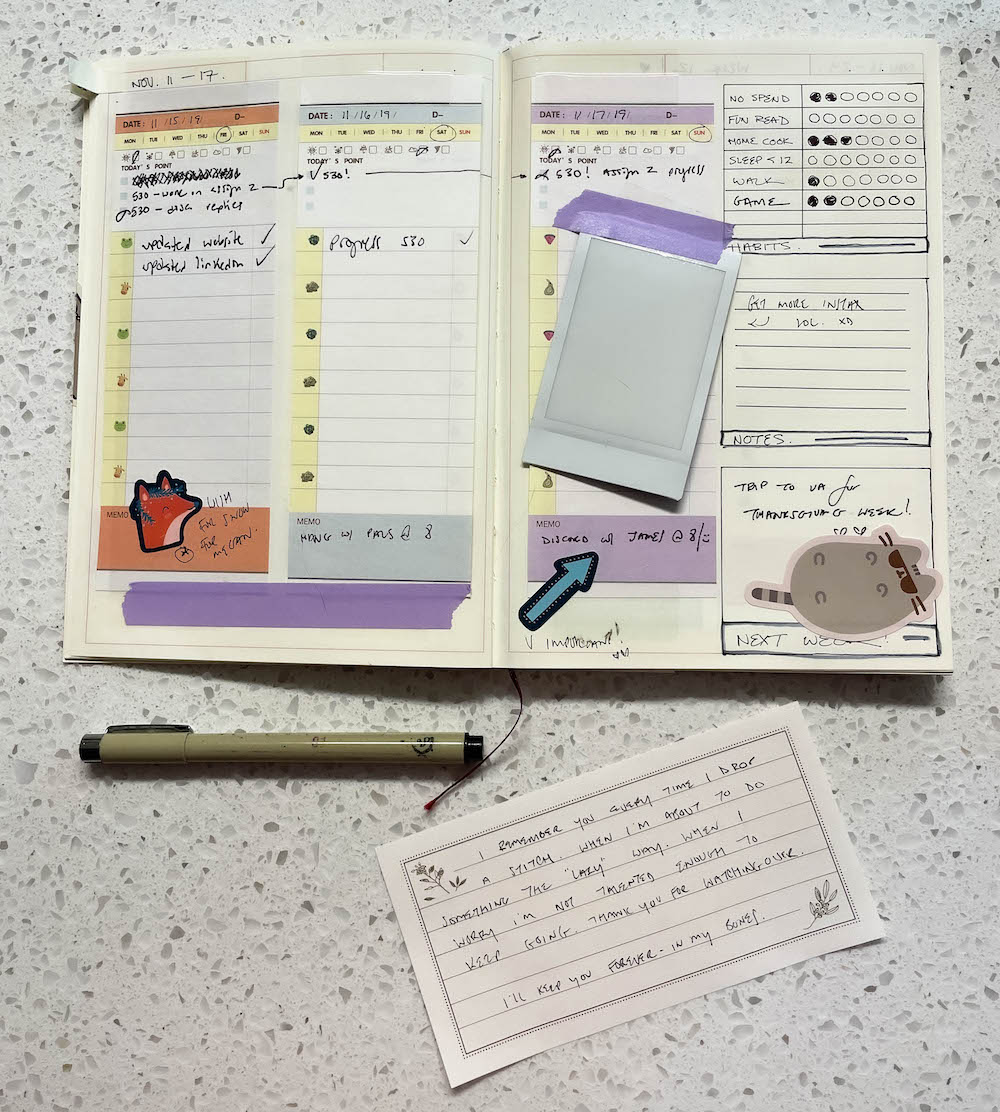 NOV. 11 — 17.
DATE: 11/15/19/ D-
MON TUE WED THU FRI SAT SUN
TODAY'S POINT
530 - work on assign 2
530 - disc replies
updated website ✓
updated linkedin ✓
MEMO
WISH
FOR SNOW
FOR
MICHIGAN.
DATE: 11/16/19/ D-
MON TUE WED THU FRI SAT SUN
TODAY'S POINT
✓ 530!
Progress 530 ✓
MEMO
HANG W/ PALS @ 8
DATE: 11/17/19/ D-
MON TUE WED THU FRI SAT SUN
TODAY'S POINT
530! Assign 2 progress
MEMO
DISCORD W/ JAMES @ 8/:)
V IMPORTANT!!
NO SPEND
FUN READ
HOME COOK
SLEEP < 12
WALK
GAME
HABITS.
GET MORE INSTAX
LOL. XD
NOTES.
TRIP TO VA for
THANKSGIVING WEEK!
NEXT WEEK!
I REMEMBER YOU EVERY TIME I DROP
A STITCH. WHEN I'M ABOUT TO DO
SOMETHING THE "LAZY" WAY. WHEN I
WORRY I'M NOT TALENTED ENOUGH TO
KEEP GOING. THANK YOU FOR WATCHING OVER.
I'LL KEEP YOU FOREVER - IN MY BONES.